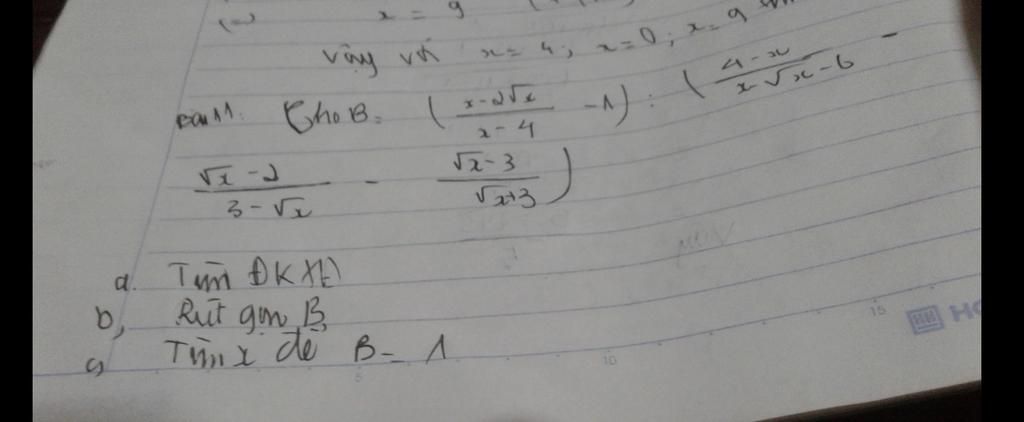 (=) x = 9
Vậy với x = 4; x = 0; x = 9
Bài 11: Cho B = ( \frac{x-2√x}{x-4} - 1 ) : ( \frac{4-x}{x-√x-6} -
\frac{√x-2}{3-√x} - \frac{√x-3}{√x+3} )
a. Tìm ĐKXĐ
b, Rút gọn B
c, Tìm x để B = 1
5 10 15